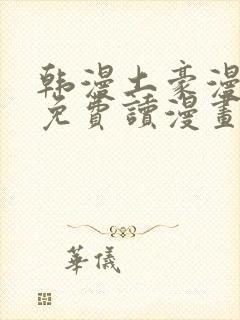 韩漫土豪漫
免費讀漫畫
華儀